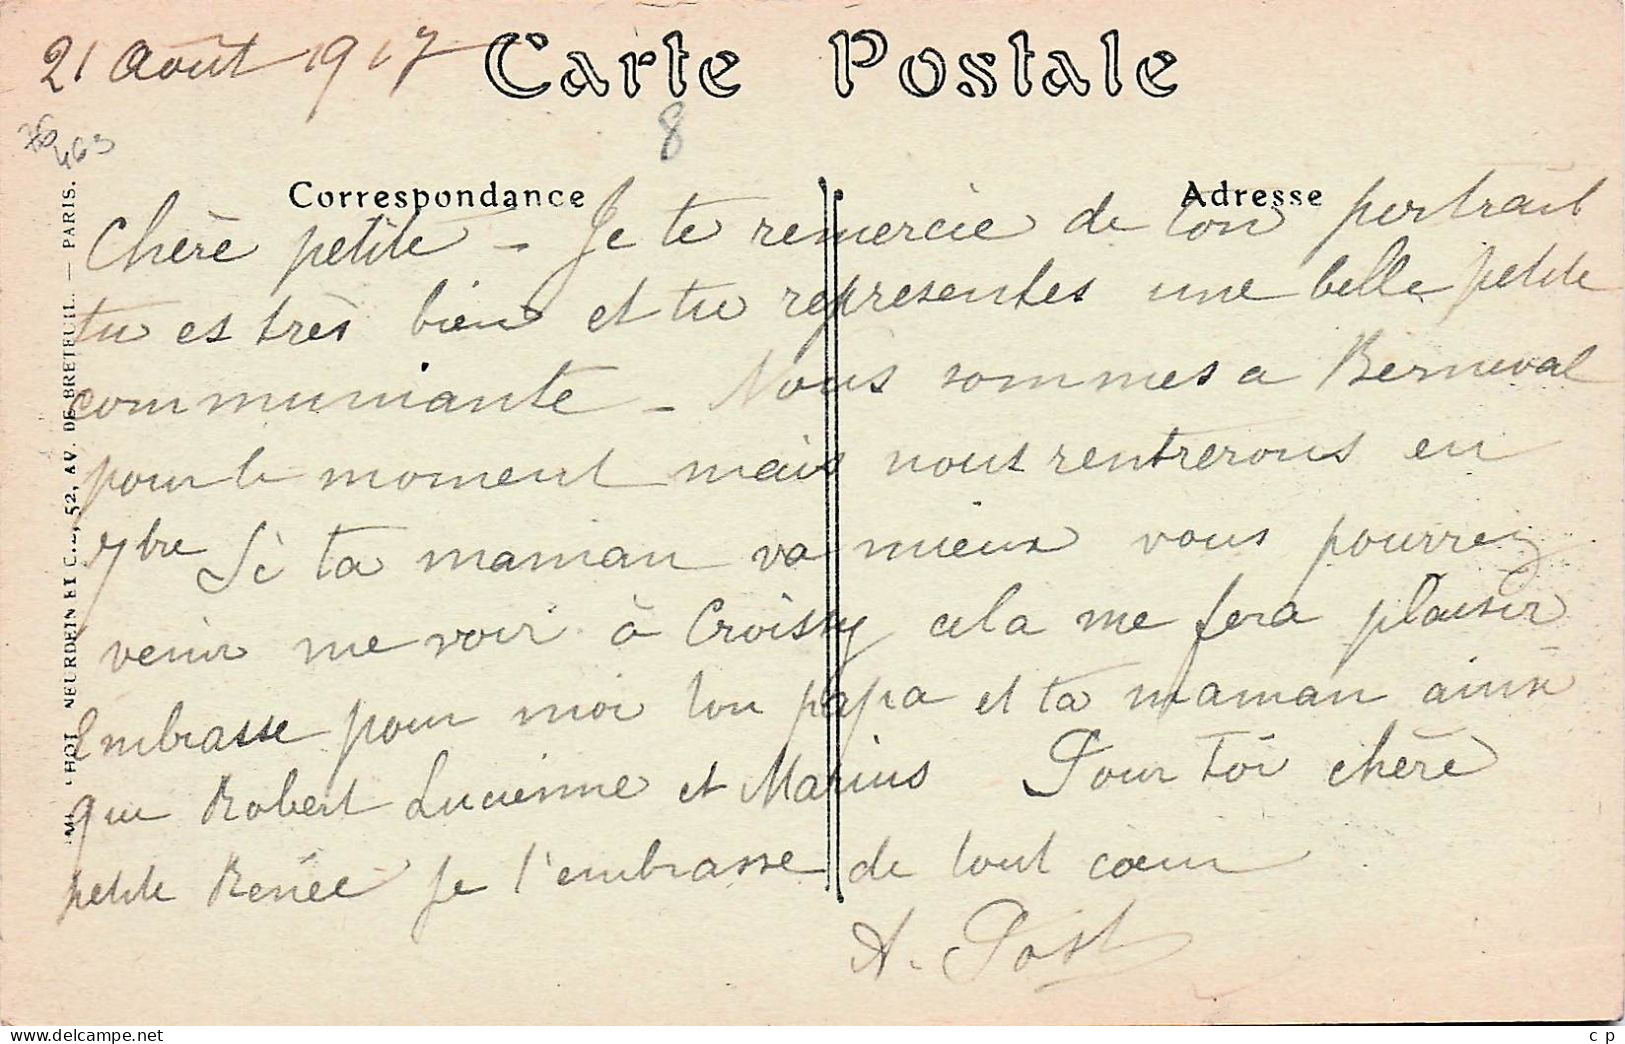 21 Août 1917
Carte Postale
8
Correspondance
Adresse
Chère petite - Je te remercie de ton portrait
tu es très bien et tu représentes une belle petite
communiante - Nous sommes a Berneval
pour le moment mais nous rentrerons en
7bre Si ta maman va mieux vous pourrez
venir me voir à Croissy cela me fera plaisir
Embrasse pour moi ton papa et ta maman ainsi
que Robert Lucienne et Marius Pour toi chère
petite Renée je t'embrasse de tout cœur
A. Post
NEURDEIN ET C.IE, 52, AV. DE BRETEUIL. — PARIS.
c p